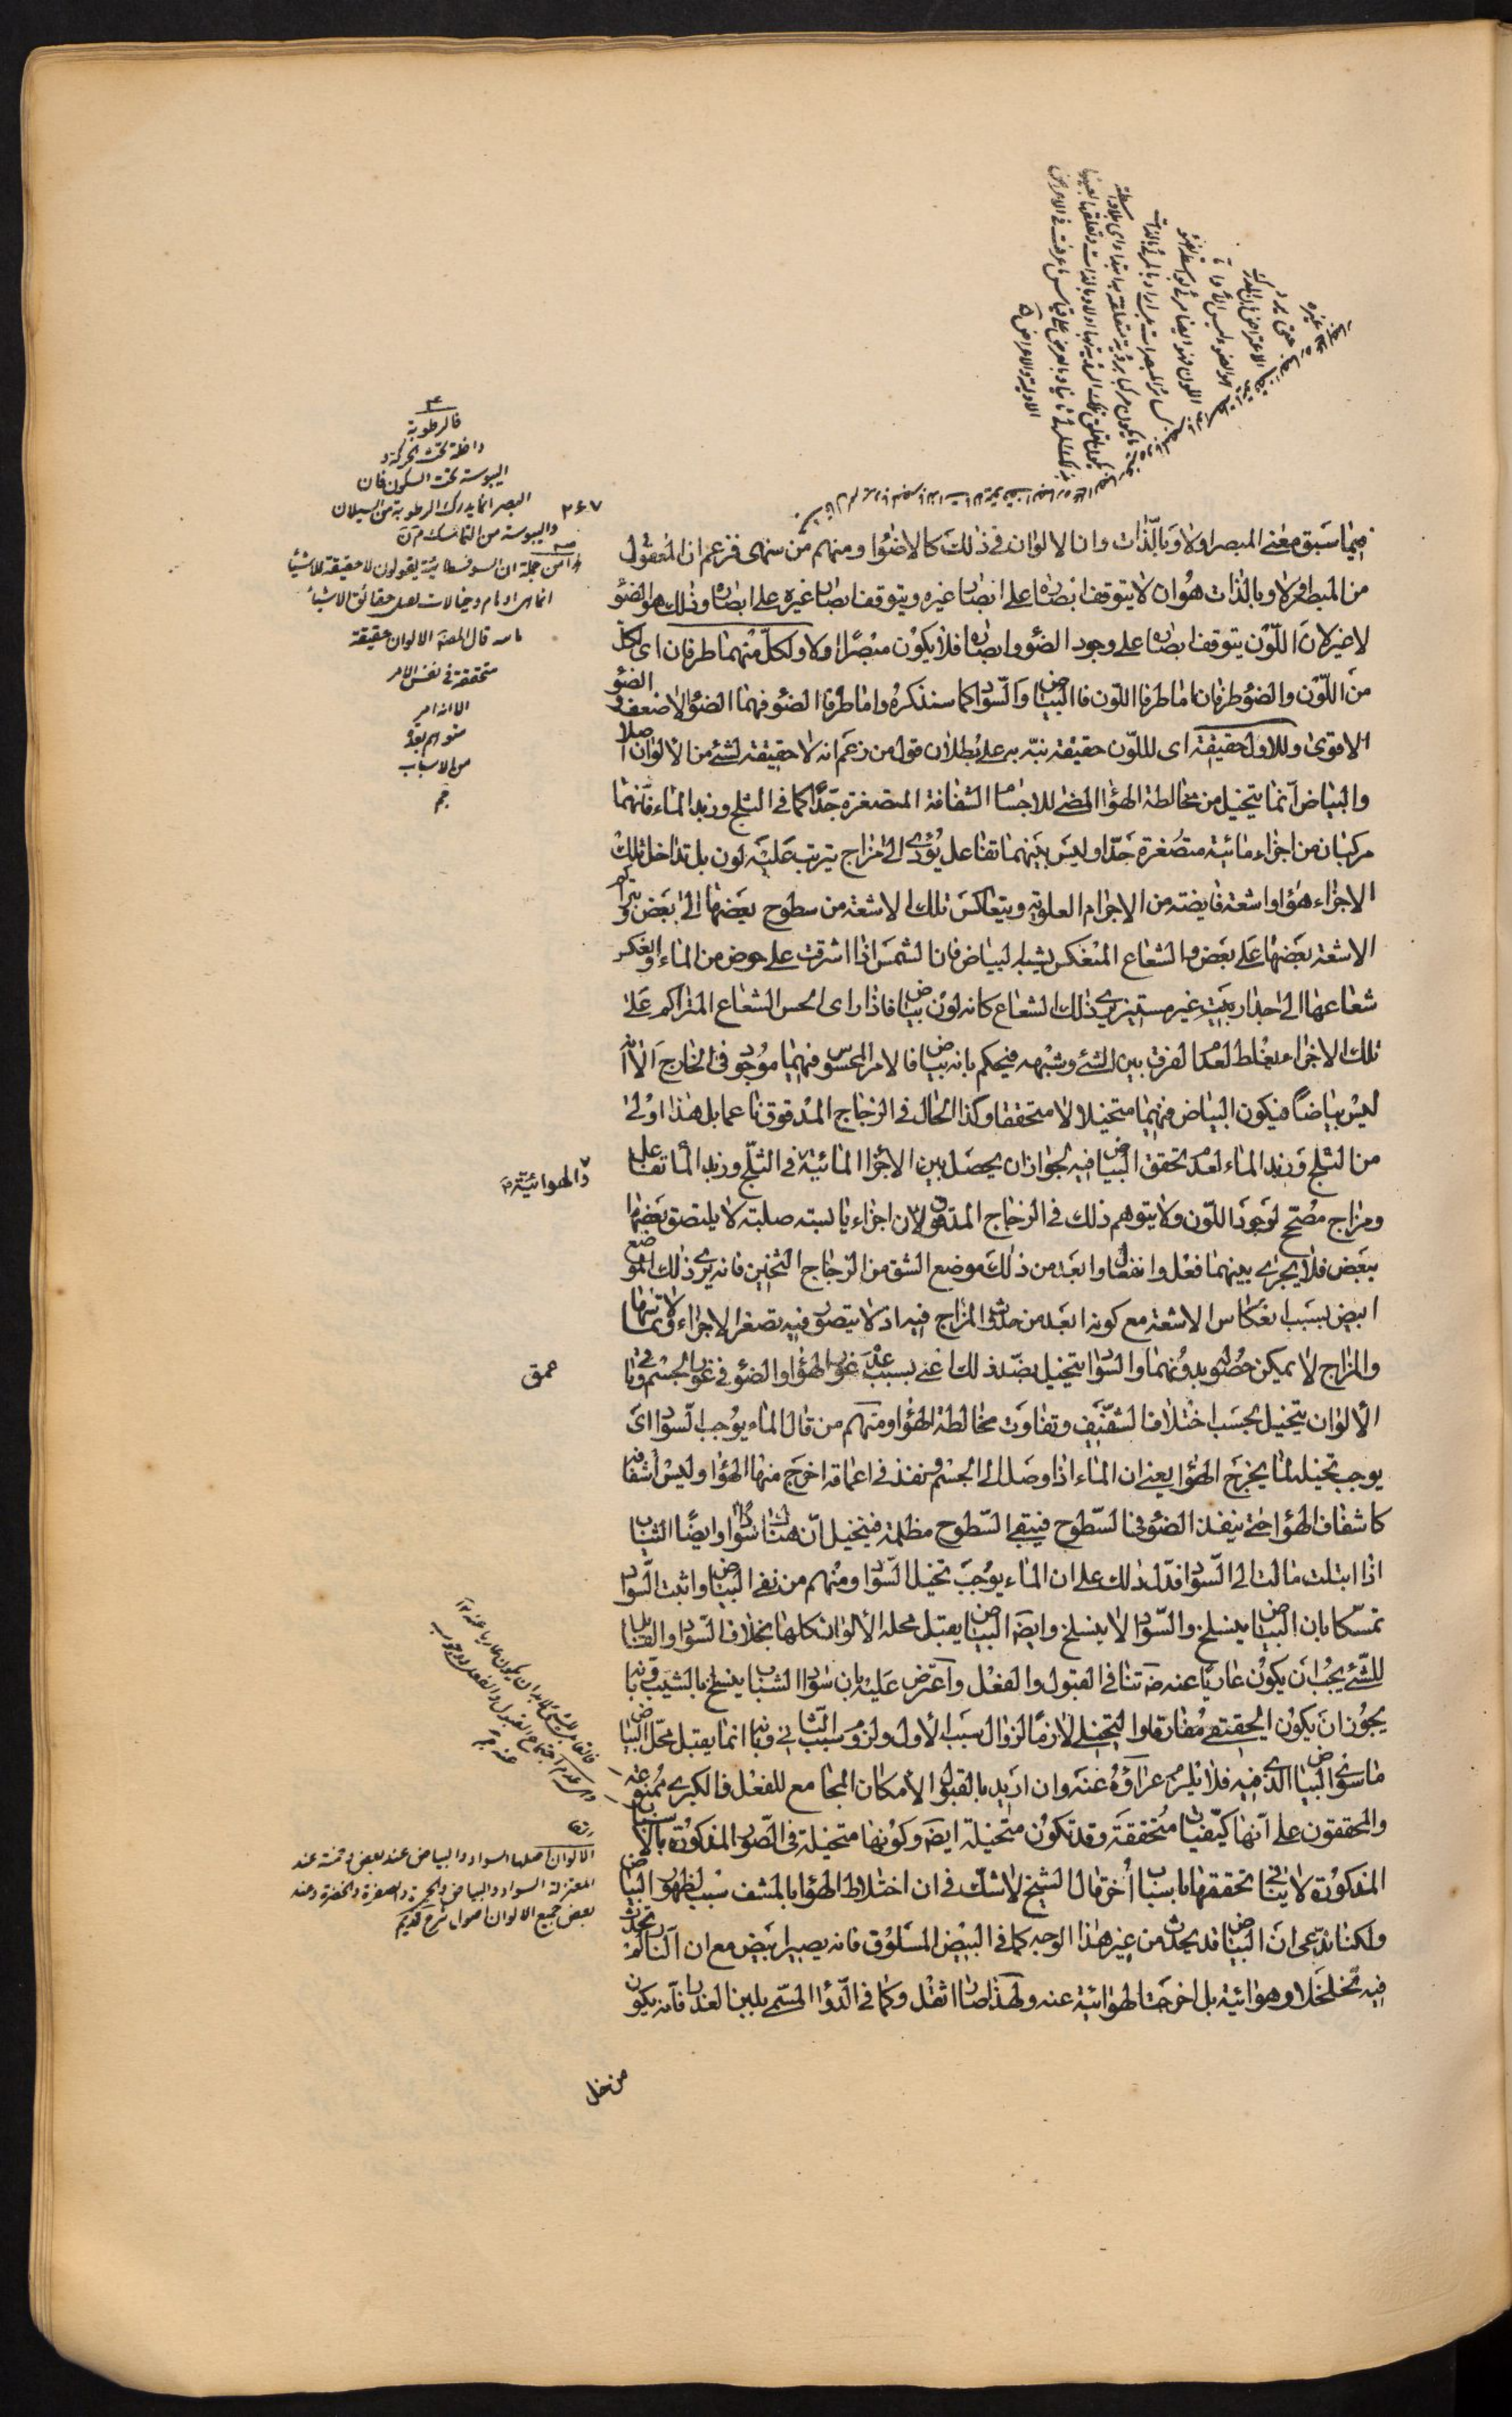 فيما سبق معنى المبصر اولا وبالذات وان الالوان في ذلك كالاضواء ومنهم من سهى فزعم ان المعقول
من المبصر اولا وبالذات هو ان لا يتوقف ابصاره على ابصار غيره ويتوقف ابصار غيره على ابصاره وذلك هو الضوء
لا غير لان اللون يتوقف ابصاره على وجود الضوء وابصاره فلا يكون مبصرا اولا ولكل منهما طرفان اى لكل
من اللون والضوء طرفان اما طرفا اللون فالبياض والسواد كما سنذكره واما طرفا الضوء فهما الضوء الاضعف والضوء
الاقوى وللاول حقيقة اى لللون حقيقة نبه به على بطلان قول من زعم انه لا حقيقة لشئ من الالوان اصلا
والبياض انما يتخيل من مخالطة الهواء المضئ للاجسام الشفافة المتصغرة جدا كما في الثلج وزبد الماء فانهما
مركبان من اجزاء مائية متصغرة جدا وليس بينهما تفاعل يؤدى الى مزاج يترتب عليه لون بل تداخل تلك
الاجزاء هواء واشعة فايضة من الاجرام العلوية ويتعاكس تلك الاشعة من سطوح بعضها الى بعض ويتراكم
الاشعة بعضها على بعض والشعاع المنعكس يشبه البياض فان الشمس اذا اشرقت على حوض من الماء وانعكس
شعاعها الى جدار بيت غير مستنير يرى ذلك الشعاع كانه لون بياض فاذا راى الحس الشعاع المتراكم على
تلك الاجزاء يغلط لعدم الفرق بين الشئ وشبهه فيحكم بانه بياض فالامر المحسوس فيهما موجود في الخارج الا انه
ليس بياضا فيكون البياض فيهما متخيلا لا متحققا وكذا الحال في الزجاج المدقوق ناعما بل هذا اولى
من الثلج وزبد الماء لعدم تحقق البياض فيه لجواز ان يحصل بين الاجزاء المائية في الثلج وزبد الماء تفاعل
ومزاج مصحح لوجود اللون ولا يتوهم ذلك في الزجاج المدقوق لان اجزاء يابسة صلبة لا يلتصق بعضها
ببعض فلا يجرى بينهما فعل وانفعال وابعد من ذلك موضع الشق من الزجاج الثخين فانه يرى ذلك الموضع
ابيض بسبب انعكاس الاشعة مع كونه ابعد من حدوث المزاج فيه اذ لا يتصور فيه تصغر الاجزاء ولا تماسها
والمزاج لا يمكن حصوله بدونهما والسواد يتخيل بضد ذلك اعنى بسبب عدم غور الهواء والضوء في غور الجسم وباقي
الالوان يتخيل بحسب اختلاف الشفيف وتفاوت مخالطة الهواء ومنهم من قال الماء يوجب السواد اى
يوجب تخيله لما يخرج الهواء يعنى ان الماء اذا وصل الى الجسم ونفذ في اعماقه اخرج منها الهواء وليس اشفافه
كاشفاف الهواء حتى ينفذ الضوء في السطوح فيبقى السطوح مظلمة فيتخيل ان هناك سوادا وايضا الثياب
اذا ابتلت مالت الى السواد فدل ذلك على ان الماء يوجب تخيل السواد ومنهم من نفى البياض واثبت السواد
تمسكا بان البياض ينسلخ والسواد لا ينسلخ وايضا البياض يقبل محله الالوان كلها بخلاف السواد والقابل
للشئ يجب ان يكون عاريا عنه تنافى القبول والفعل واعترض عليه بان سواد الشباب ينسلخ بالشيب وبانه
يجوز ان يكون الحقيقي مفارقا والتخيلى لازما لزوال سبب الاول ولزوم سبب الثانى وبانه انما يقبل محل البياض
ما سوى البياض الذى فيه فلا يلزم عراؤه عنه وان اريد بالقبول الامكان المجامع للفعل فالكبرى ممنوعة
والمحققون على انها كيفيات متحققة وقد تكون متخيلة ايضا وكونها متخيلة في الصور المذكورة بالاسباب
المذكورة لا ينافى تحققها باسباب اخر قال الشيخ لا شك في ان اختلاط الهواء بالمشف سبب لظهور البياض
ولكنا ندعى ان البياض قد يحدث من غير هذا الوجه كما في البيض المسلوق فانه يصير ابيض مع ان النار لم تحدث
فيه تخلخلا وهوائية بل اخرجت الهوائية عنه ولهذا صار اثقل وكما في الدواء المسمى بلبن العذراء فانه يكون
من خل
٢٦٧
فالرطوبة
داخلة تحت الحركة و
اليبوسة تحت السكون فان
البصر انما يدرك الرطوبة من السيلان
واليبوسة من التماسك
من جملة ان السوفسطائية يقولون لا حقيقة للاشياء
انما هى اوهام وخيالات
قال المصنف الالوان حقيقة
متحققة في نفس الامر
والهوائية
عمق
الالوان اصلها السواد والبياض عند بعض وخمسة عند
المعتزلة السواد والبياض والحمرة والصفرة والخضرة وعند
بعض جميع الالوان اصول شرح قديم